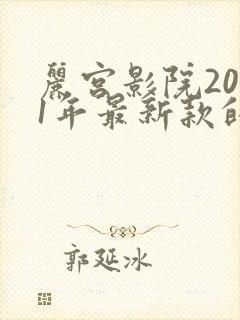 麗宮影院20
1年最新款的
郭延冰